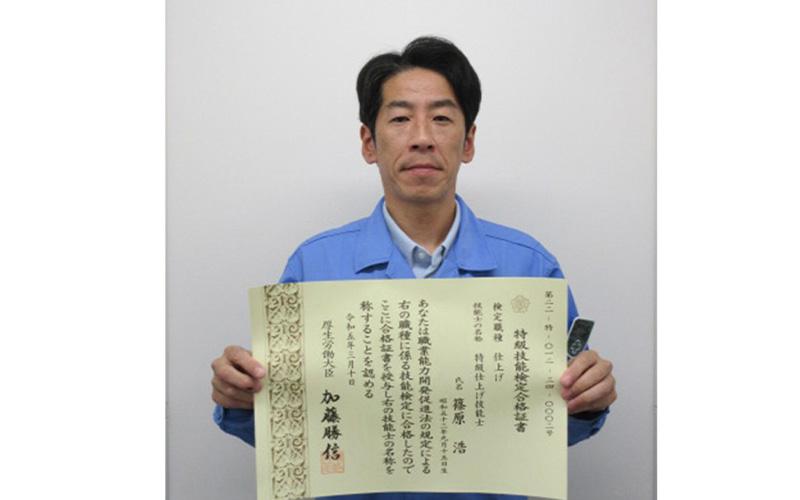 第二二-特-〇一二-三四-〇〇〇一号
特級技能検定合格証書
検定職種 仕上げ
技能士の名称 特級仕上げ技能士
氏名 篠原 浩
昭和五十二年九月十五日生
あなたは職業能力開発促進法の規定による
右の職種に係る技能検定に合格したので
ここに合格証書を授与し右の技能士の名称を
称することを認める
令和五年三月十日
厚生労働大臣 加藤勝信